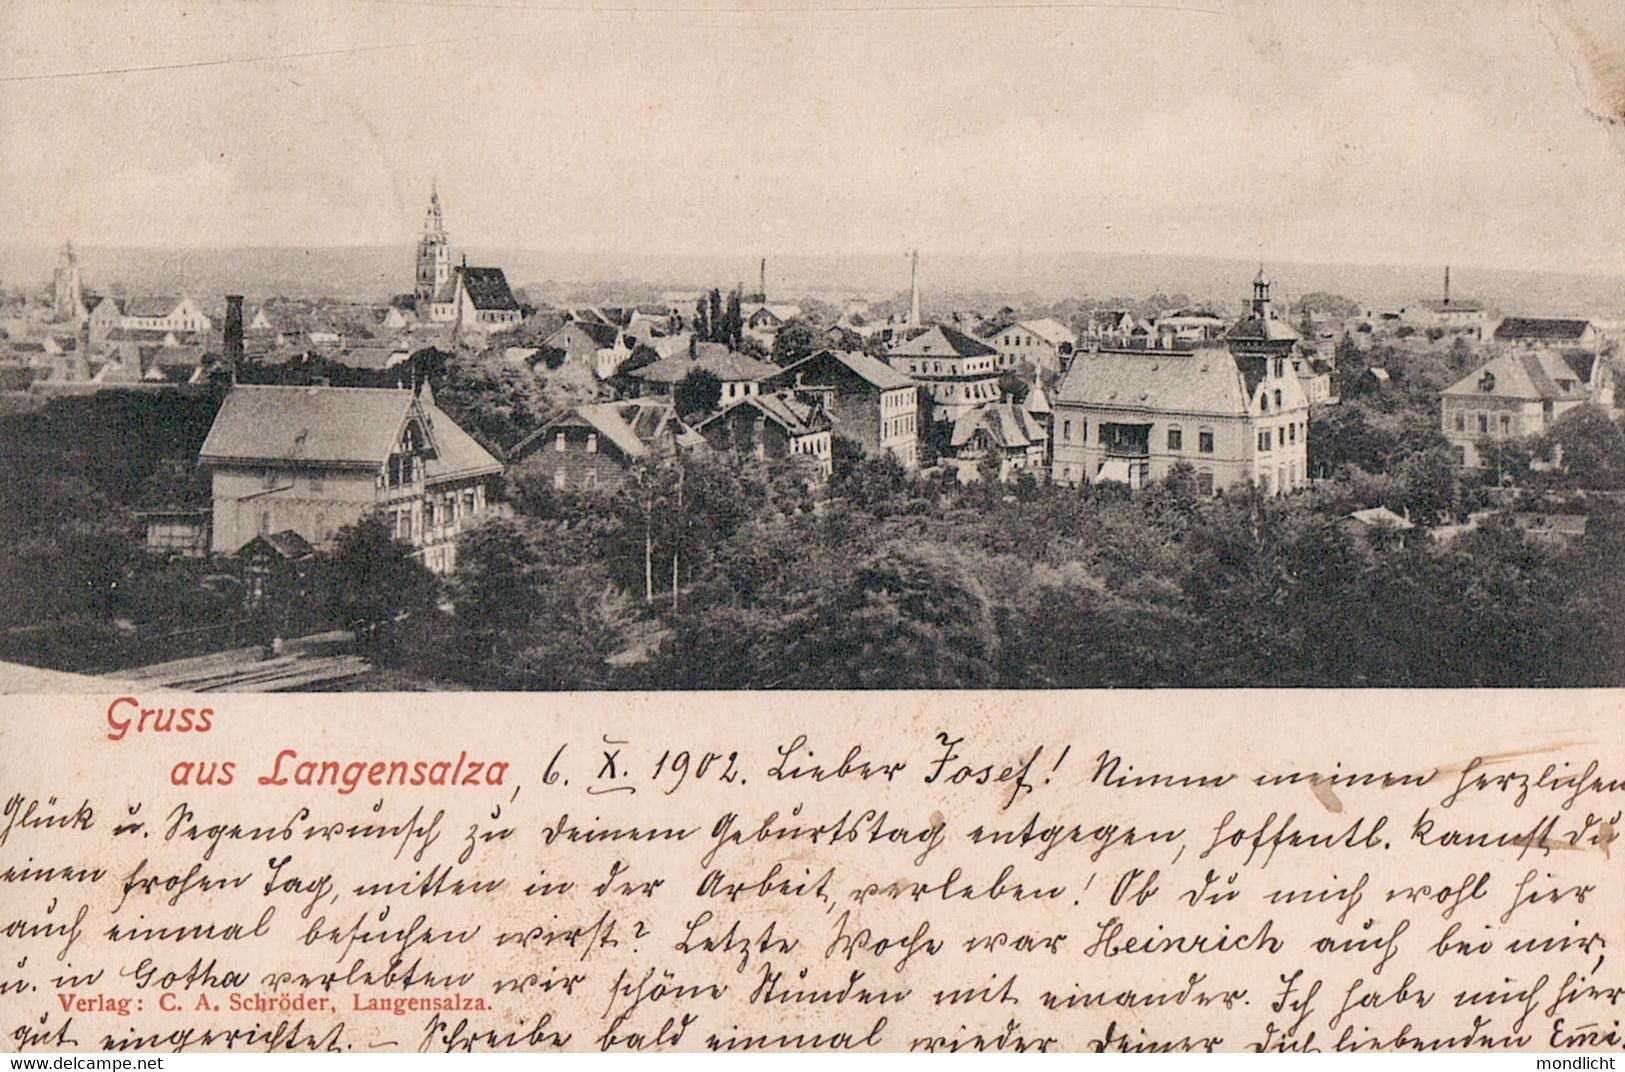 Gruss
aus Langensalza, 6. X. 1902. Lieber Josef! Nimm meinen herzlichen
Glück u. Segenswunsch zu deinem Geburtstag entgegen, hoffentl. kannst du
einen frohen Tag, mitten in der Arbeit, verleben! Ob du mich wohl hier
auch einmal besuchen wirst? Letzte Woche war Heinrich auch bei mir,
u. in Gotha verlebten wir schöne Stunden mit einander. Ich habe mich hier
Verlag: C. A. Schröder, Langensalza.
gut eingerichtet. – Schreibe bald einmal wieder deiner dich liebenden Emi.
delcampe.net
mondlicht